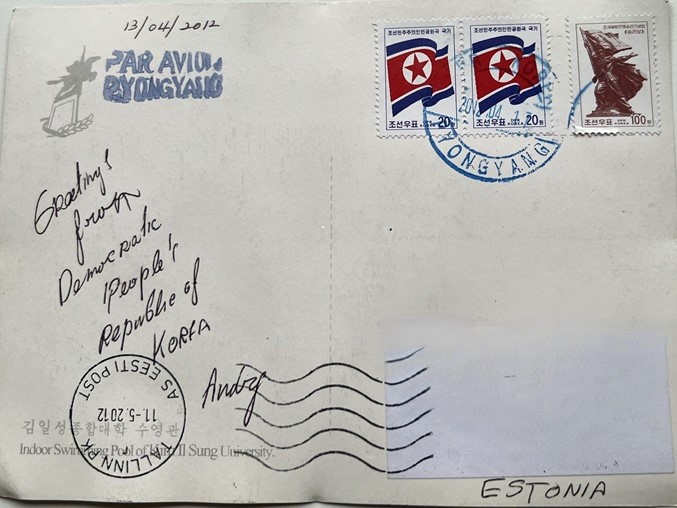 13/04/2012
PAR AVION
PYONGYANG
조선민주주의인민공화국 국기
조선우표 20원
조선민주주의인민공화국 국기
조선우표 20원
조선우표 100원
PYONGYANG
Greetings
from
Democratic
People's
Republic of
KOREA
Andrej
AS EESTI POST
11.-5.2012
TALLINN PK
김일성종합대학 수영관
Indoor Swimming Pool of Kim Il Sung University.
ESTONIA